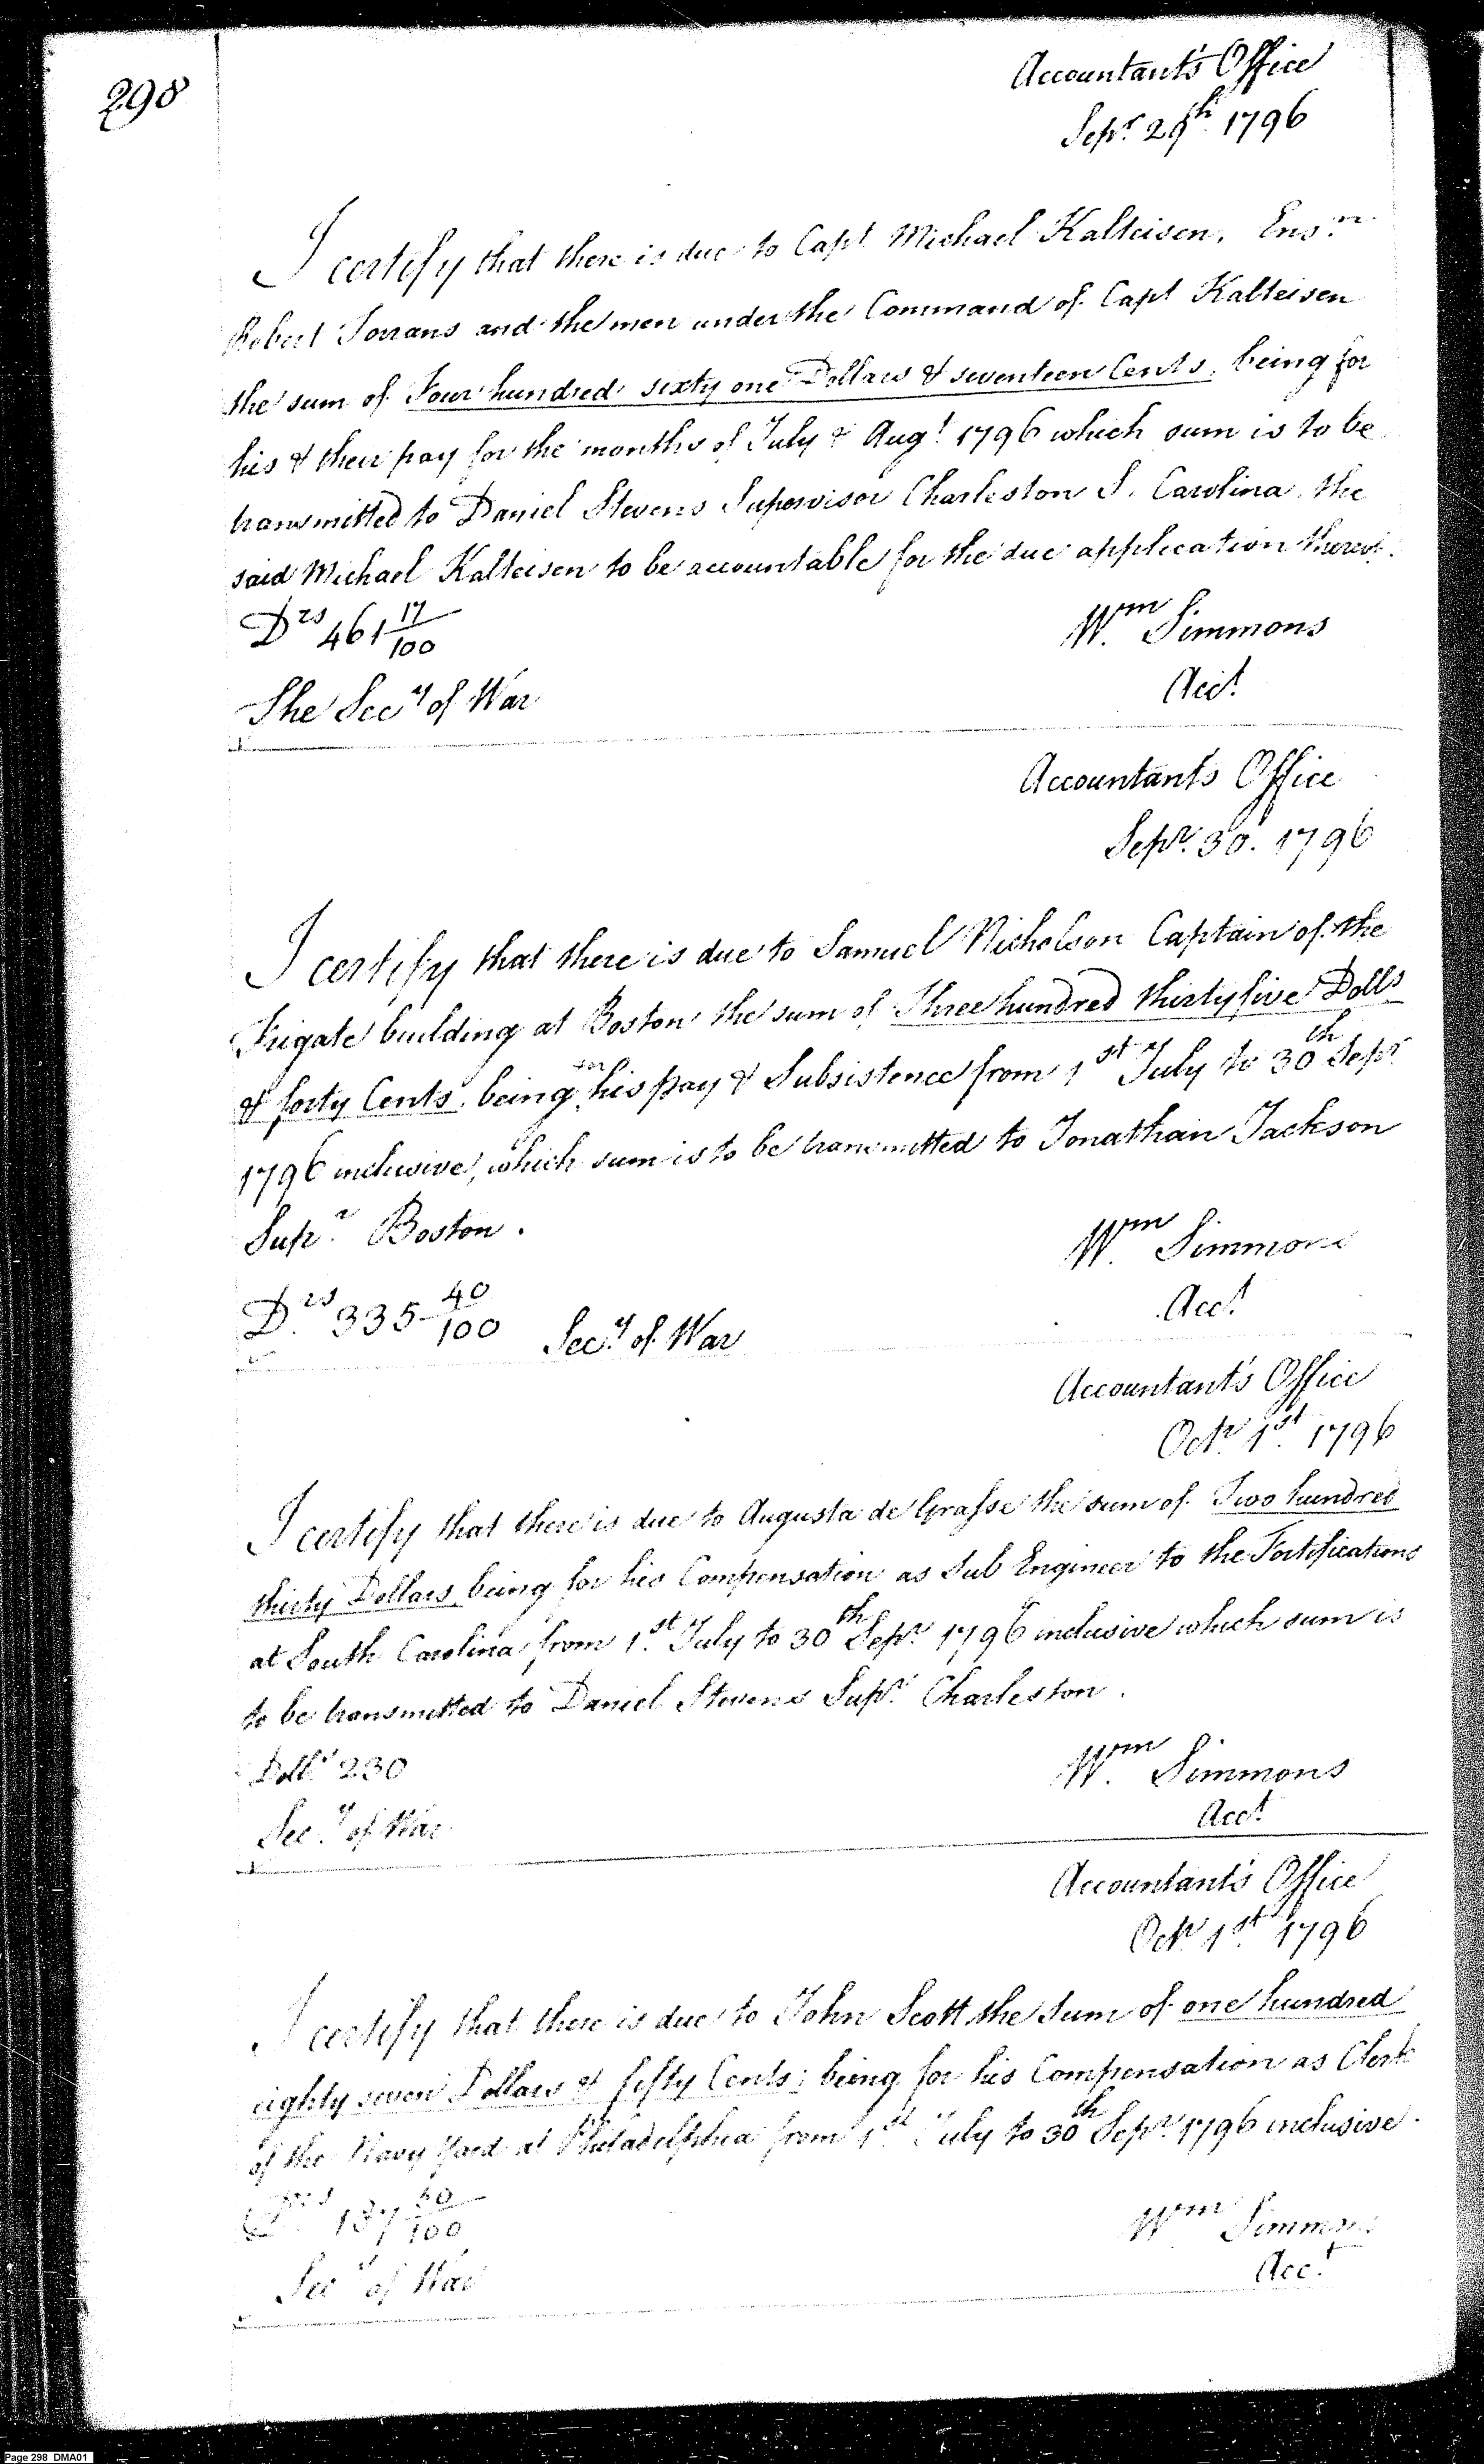 298
Accountant's Office
Sepr. 29th. 1796
I certify that there is due to Capt. Michael Kalteisen, Ensn.
Robert Torrans and the men under the Command of Capt Kalteisen
the sum of Four hundred sixty one Dollars & seventeen Cents, being for
his & their pay for the months of July & Augt. 1796 which sum is to be
transmitted to Daniel Stevens Supervisor Charleston S. Carolina, the
said Michael Kalteisen to be accountable for the due application thereof.
Drs 461 17/100
Wm. Simmons
Acct.
The Secy of War
Accountant's Office
Sepr. 30. 1796
I certify that there is due to Samuel Nicholson Captain of the
Frigate building at Boston the sum of Three hundred thirty five Dolls
& forty Cents, being for his pay & Subsistence from 1st July to 30th Sepr.
1796 inclusive, which sum is to be transmitted to Jonathan Jackson
Supr. Boston.
Wm. Simmons
Acct.
D.rs 335 40/100
Secy. of War
Accountant's Office
Octr. 1st. 1796
I certify that there is due to Augusta de Grasse the sum of Two hundred
thirty Dollars being for his Compensation as Sub Engineer to the Fortifications
at South Carolina from 1st. July to 30th Sepr. 1796 inclusive which sum is
to be transmitted to Daniel Stevens Supr. Charleston.
Dolls. 230
Wm. Simmons
Acct.
Secy. of War
Accountant's Office
Octr. 1st. 1796
I certify that there is due to John Scott the Sum of one hundred
eighty seven Dollars & fifty Cents; being for his Compensation as Clerk
of the Navy Yard at Philadelphia from 1st July to 30th Sepr. 1796 inclusive.
Drs 187 50/100
Wm Simmons
Acct.
Secy of War
Page 298 DMA01